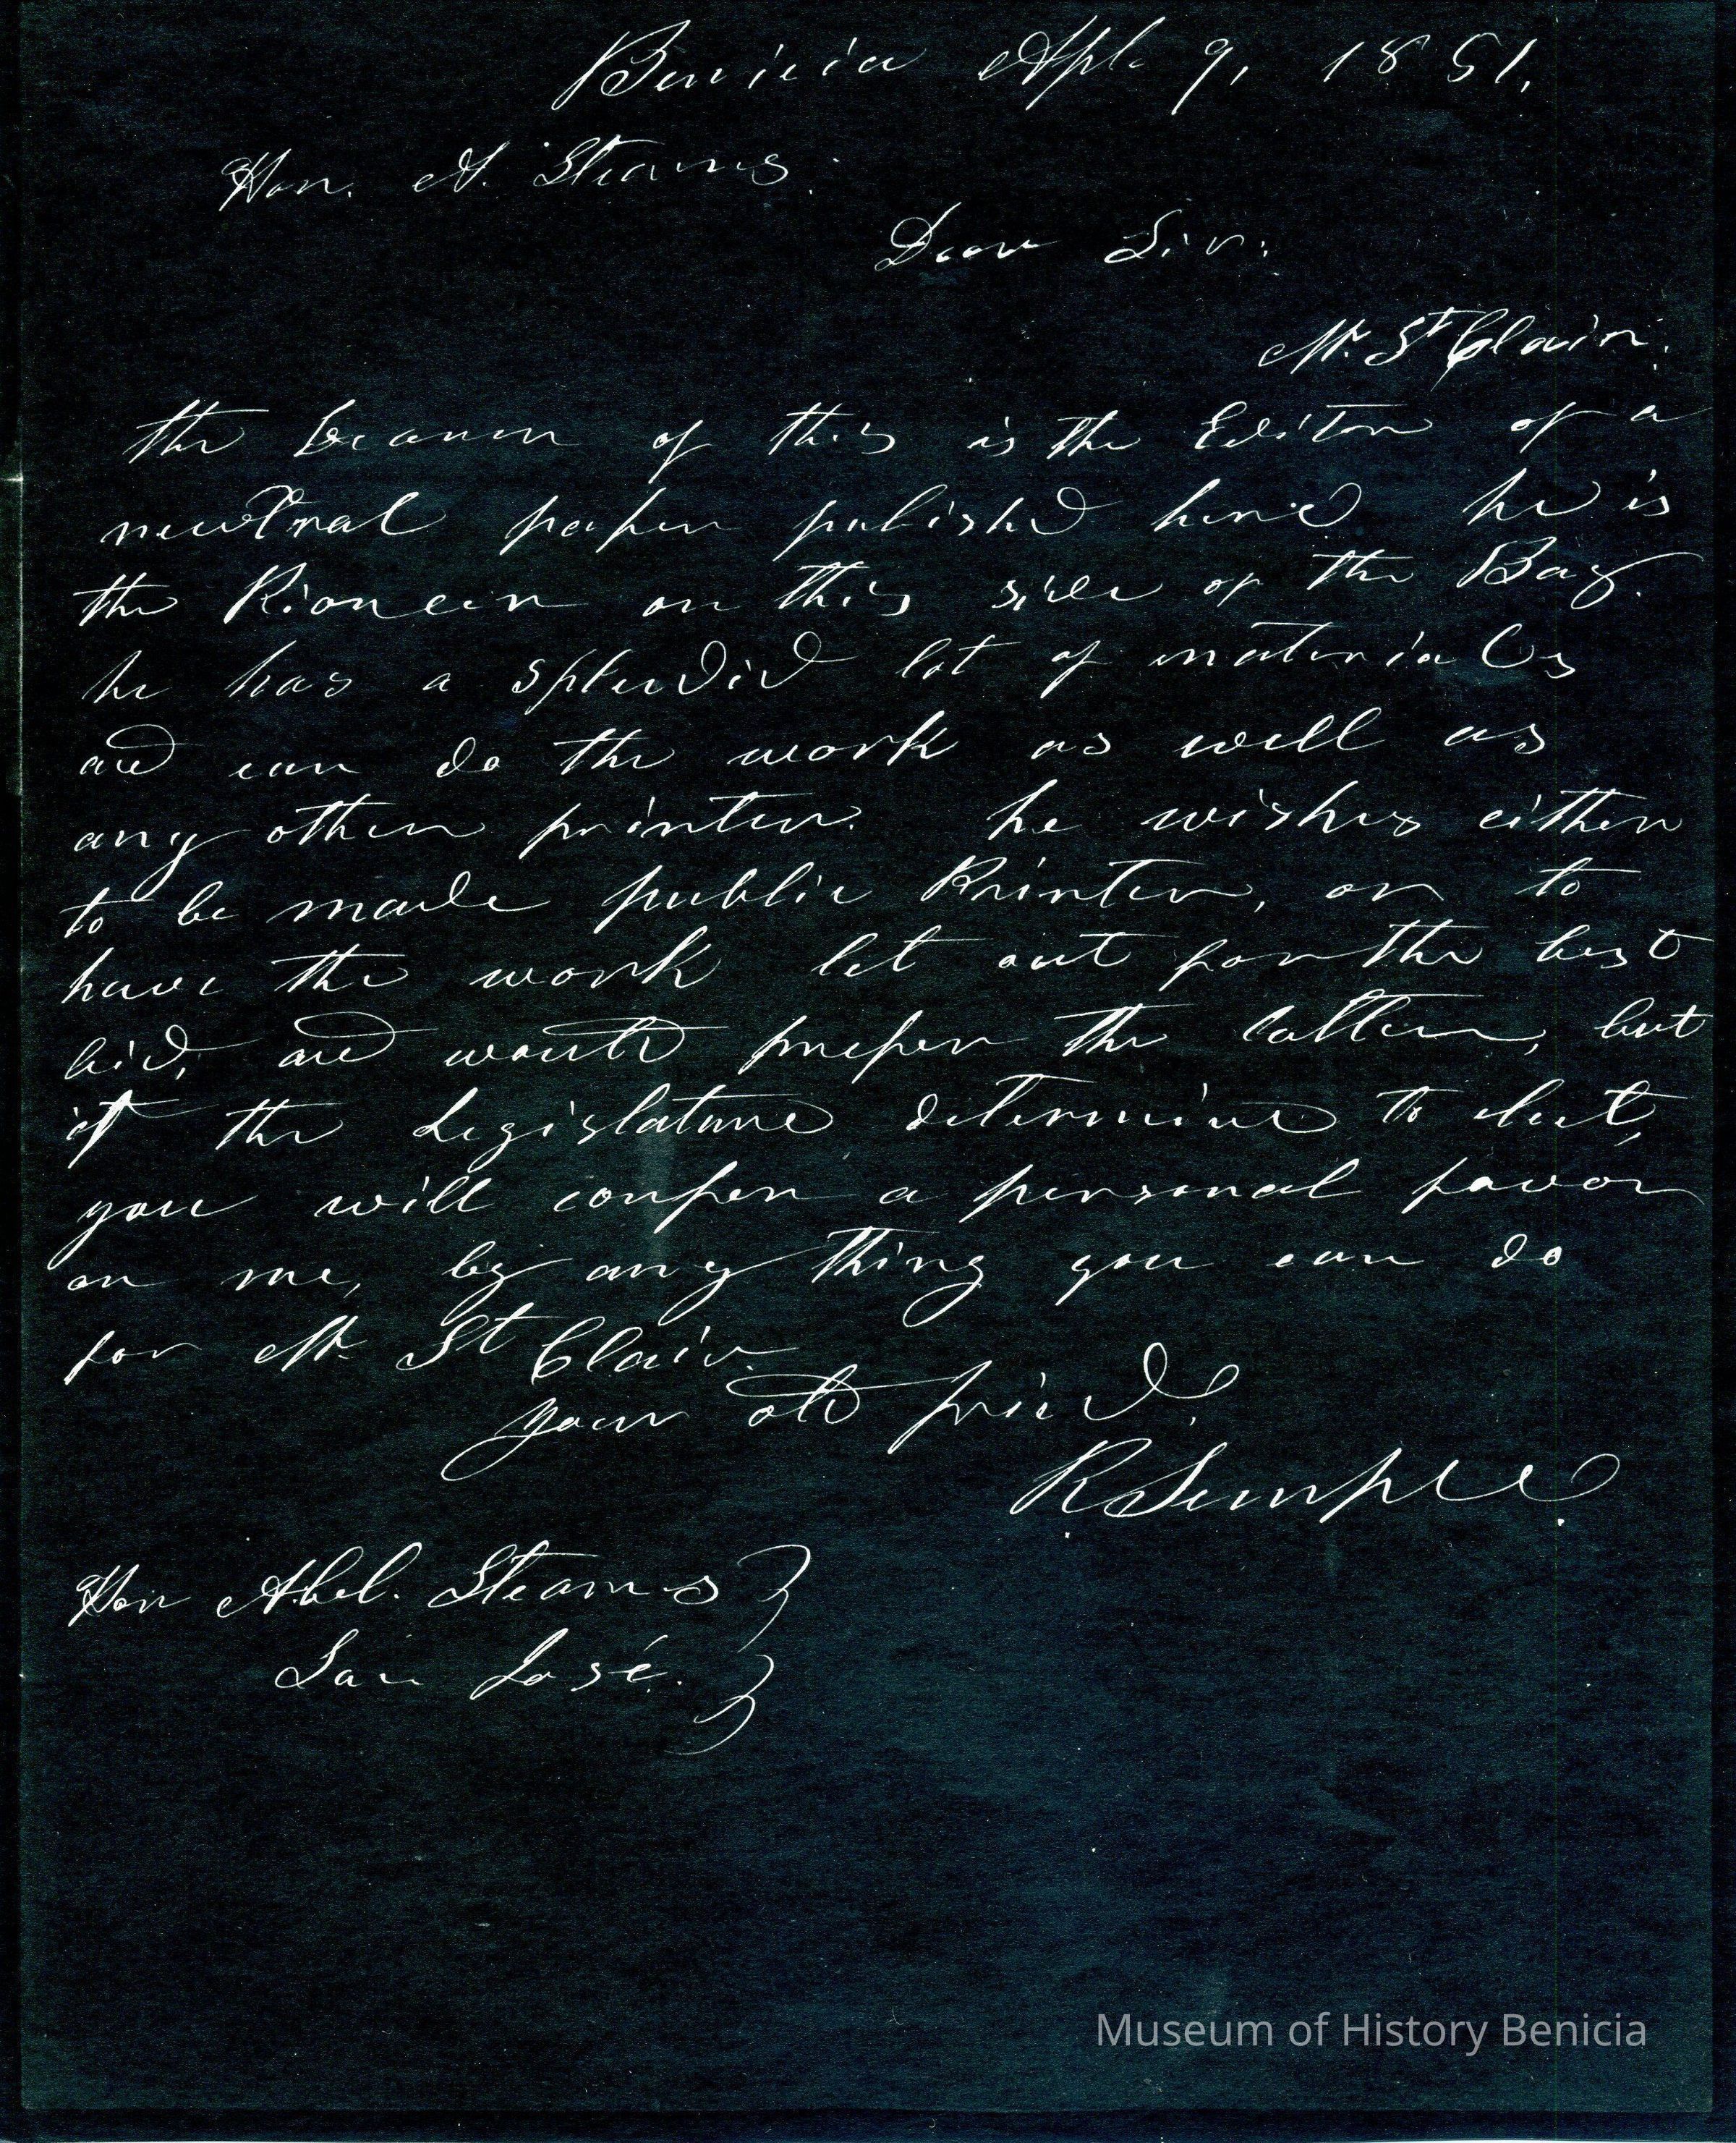 Benicia Apl. 9, 1851.
Hon. A. Stearns.
Dear Sir:
Mr. St Clair.
the bearer of this is the Editor of a
neutral paper publishd here he is
the Pioneer on this side of the Bay.
he has a splendid lot of materials
and can do the work as well as
any other printer. he wishes either
to be made public Printer, or to
have the work let out for the best
bid, and would prefer the latter, but
if the Legislature determine to elect,
you will confer a personal favor
on me, by any thing you can do
for Mr. St Clair.
your old friend,
R. Semple.
Hon Abel. Stearns
San José.
Museum of History Benicia